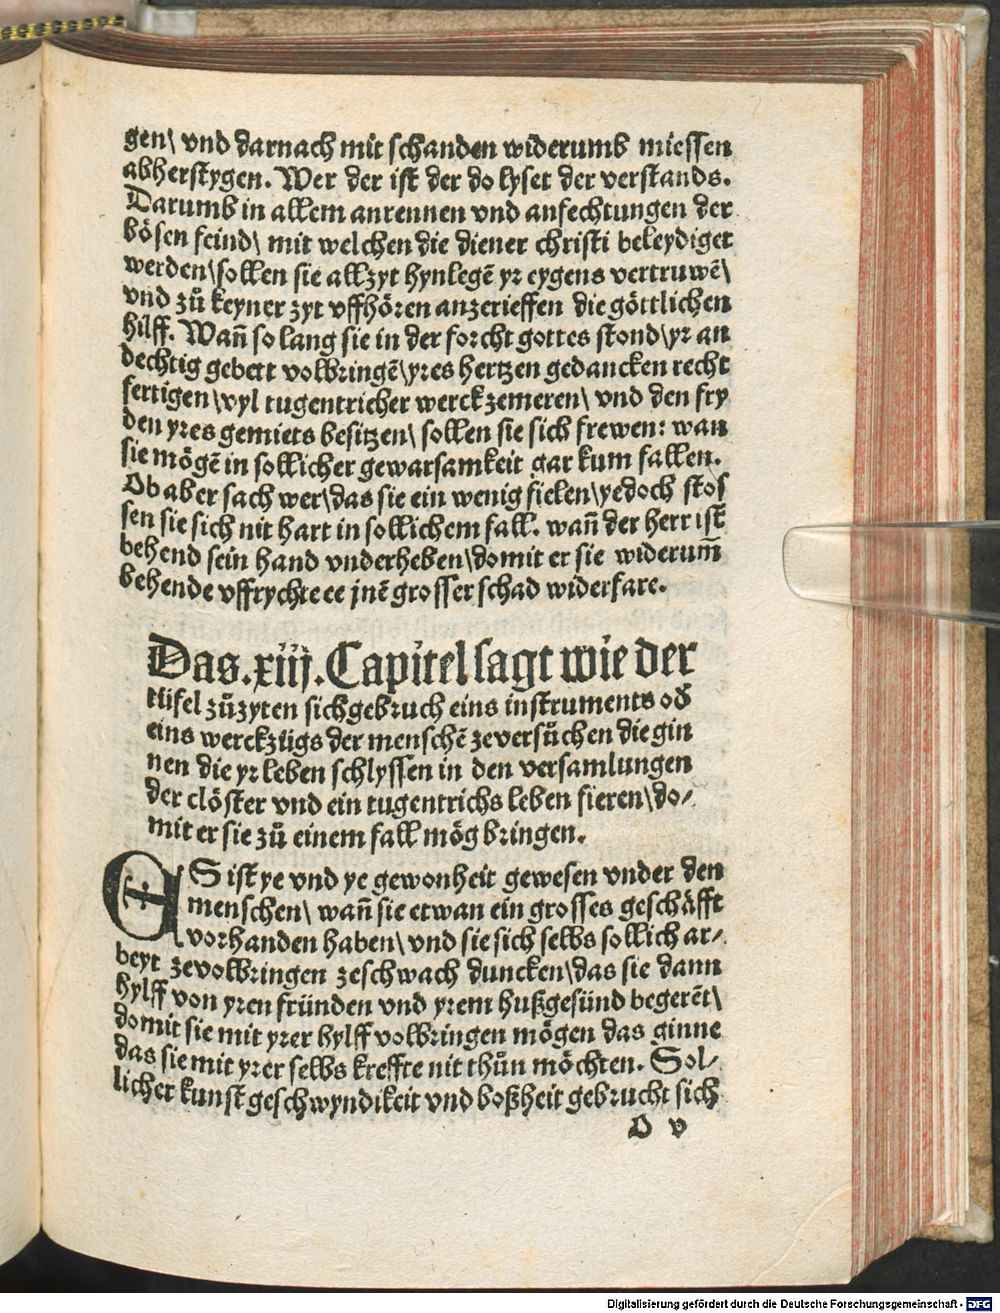 gen\ vnd darnach mit schanden widerumb miessen
abherstygen. Wer der ist der do lyset der verstands.
Darumb in allem anrennen vnd anfechtungen der
bösen feind\ mit welchen die diener christi beleydiget
werden\sollen sie allzyt hynlegē yr eygens vertruwē\
vnd zů keyner zyt vffhören anzerieffen die göttlichen
hilff. Wañ so lang sie in der forcht gottes stond\yr an
dechtig gebett volbringē\yres hertzen gedancken recht
fertigen\vyl tugentricher werck zemeren\ vnd den fry
den yres gemiets besitzen\ sollen sie sich frewen: wan
sie mögē in sollicher gewarsamkeit gar kum fallen.
Ob aber sach wer\das sie ein wenig fielen\yedoch stos
sen sie sich nit hart in sollichem fall. wañ der herr ist
behend sein hand vnderheben\domit er sie widerum̄
behende vffrychte ee jnē grosser schad widerfare.
Das.xiij.Capitel sagt wie der
tüfel zůzyten sich gebruch eins instruments od̄
eins werckzügs der menschē zeversůchen die gin
nen die yr leben schlyssen in den versamlungen
der clöster vnd ein tugentrichs leben fieren\do⸗
mit er sie zů einem fall mög bringen.
ES ist ye vnd ye gewonheit gewesen vnder den
menschen\ wañ sie etwan ein grosses geschäfft
vorhanden haben\ vnd sie sich selbs sollich ar⸗
beyt zevolbringen zeschwach duncken\das sie dann
hylff von yren fründen vnd yrem hußgesünd begerēt\
domit sie mit yrer hylff volbringen mögen das ginne
das sie mit yrer selbs kreffte nit thůn möchten. Sol⸗
licher kunst geschwyndikeit vnd boßheit gebrucht sich
D v
Digitalisierung gefördert durch die Deutsche Forschungsgemeinschaft - DFG